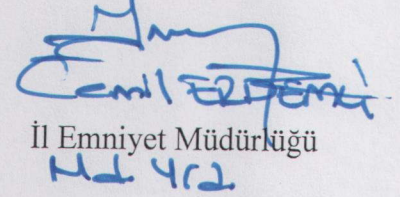 Cemil ERDEMCİ
İl Emniyet Müdürlüğü
Md. Yrd.